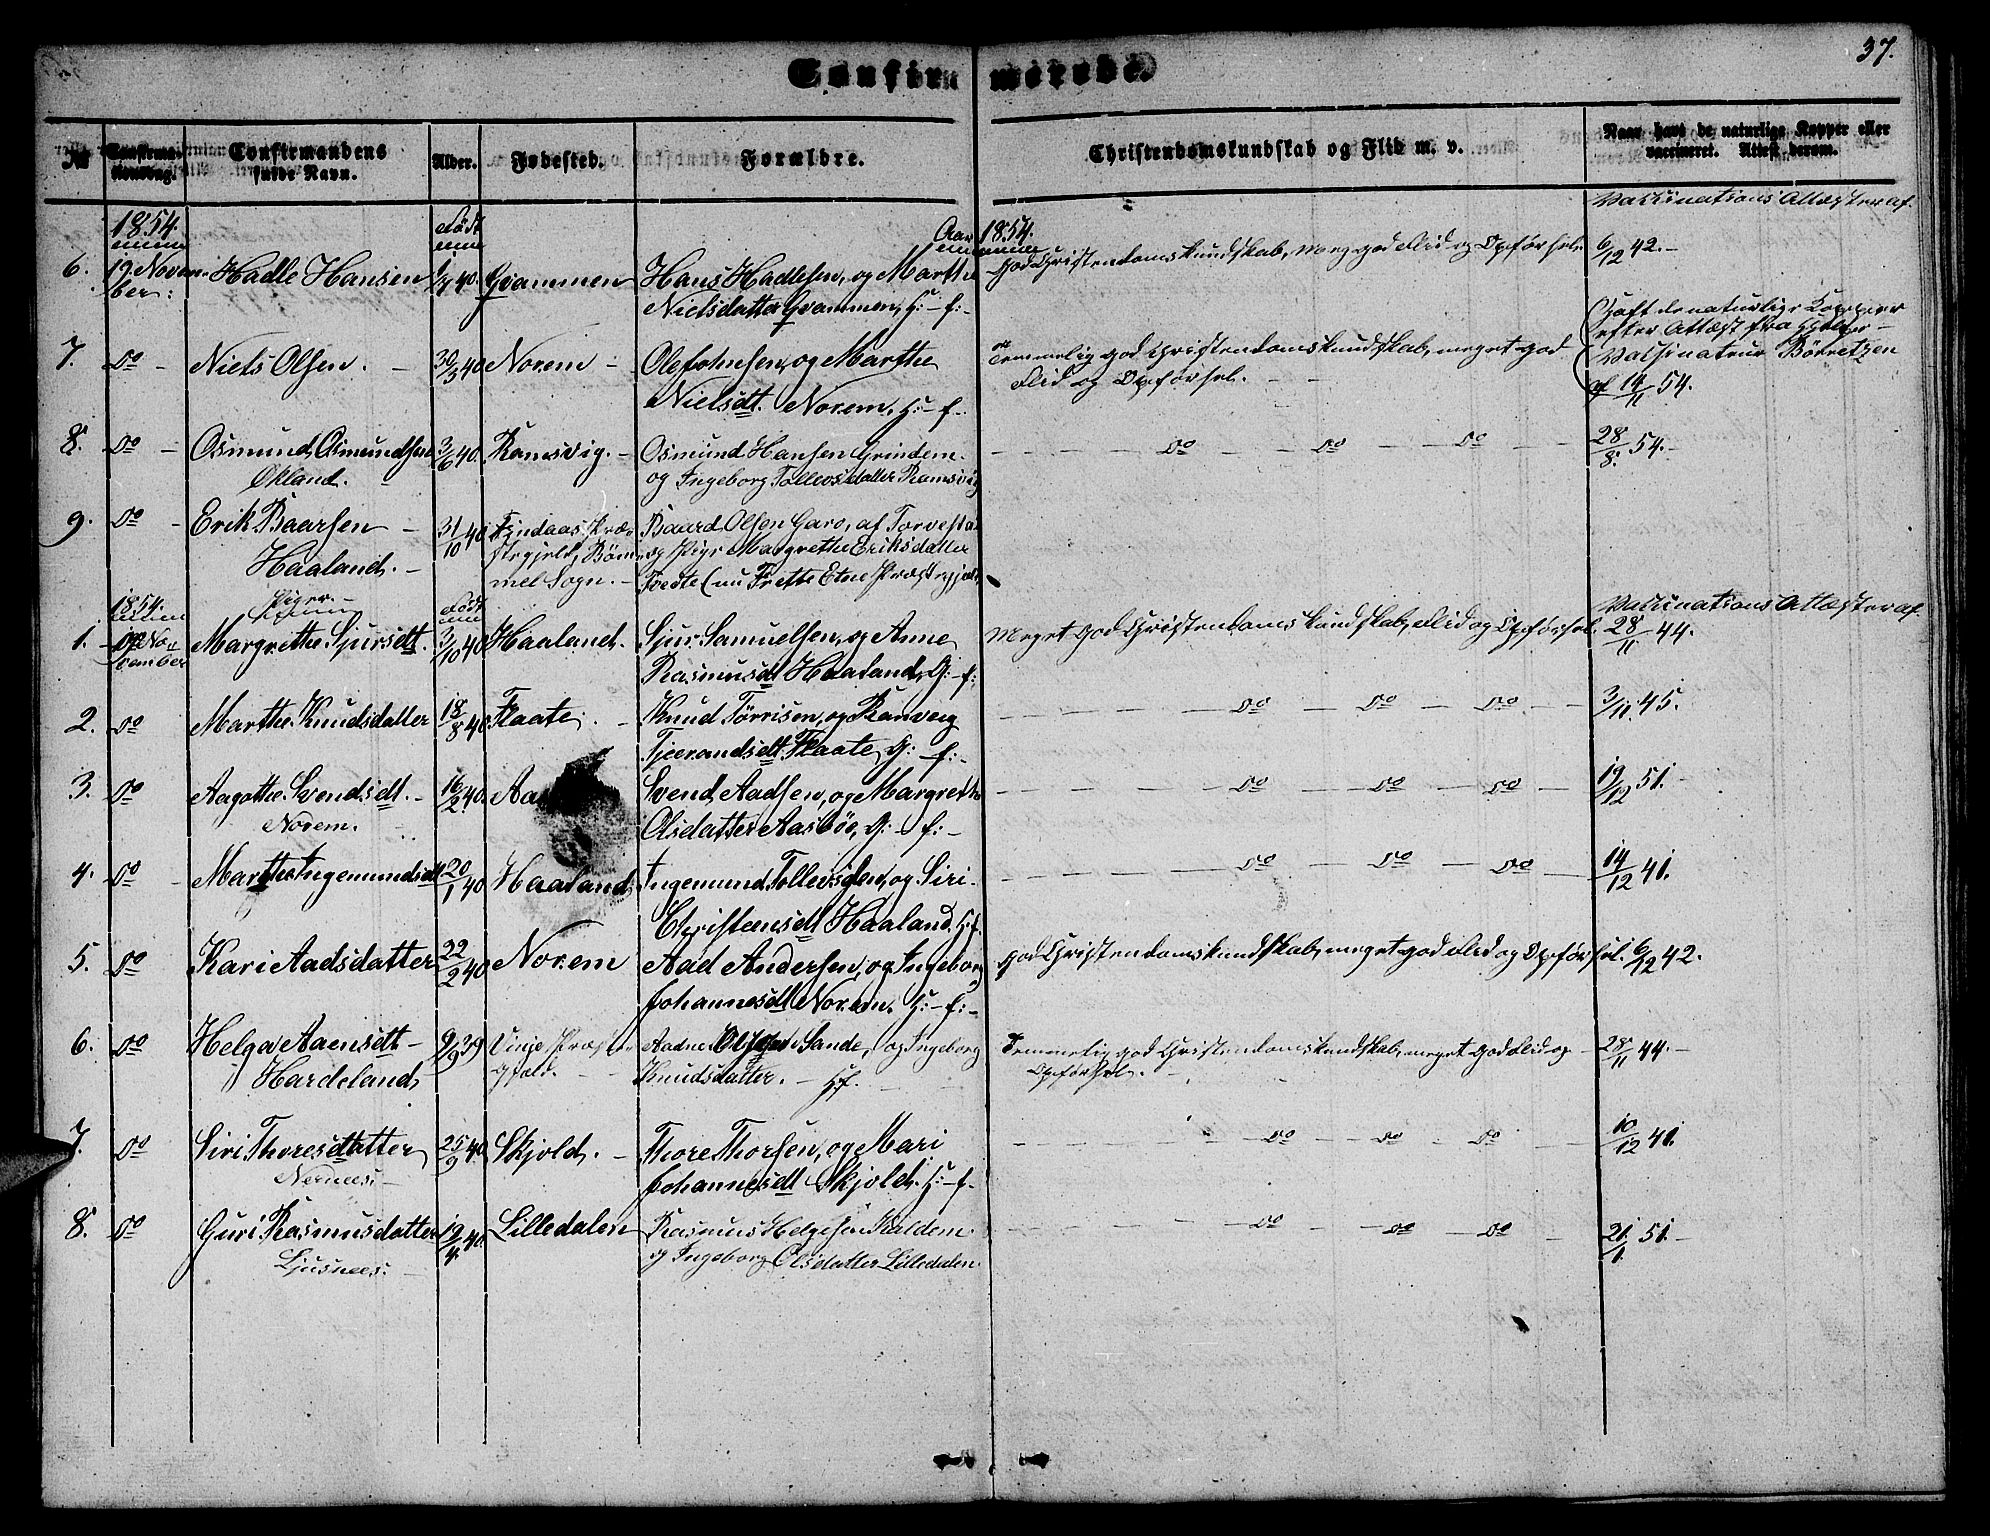 37.
Confirmerede
№ Confirmationsdag. Confirmandens fulde Navn. Alder. Fødested. Forældre. Christendomskundskab og Flid m. v. Naar havt de naturlige Kopper eller vaccineret. Attest derom.
1854. Født Aar 1854. Vaccinations Attester af
6. 19 Novem- Hadle Hansen 1/7 40. Qvammen Hans Hadlesen, og Marthe God Christendomskundskab, meg god Flid og Opførsel. 6/12 42.-
ber: Nielsdatter Qvammen, H:- f:-
Havt de naturlige Kopper
efter Attest fra Hjelpe-
7. Do - Niels Olsen. - 30/3 40 Norem - Ole Johnsen, og Marthe Temmelig god Christendomskundskab, meget god Vaccinateur Börretzen
Nielsdt. Norem, H:- f:- Flid og Opførsel. - - af 14/11 54.
8. Do - Osmund Osmundsen 3/6 40. Ramsvig. - Osmund Hansen Grindem - - - Do - - Do - - Do - 28/8. 54.-
Økland. og Ingeborg Tollevsdatter Ramsvig
9. Do - Erik Baarsen - 31/10 40 Findaas Præ- Baard Olsen Garo, af Torvestad
Haaland. - stegjeld, Böm- og Pige Margrethe Eriksdatter
mel Sogn. - Tvedte (nu Frette Etne Præstegjeld
1854. Piger Født Vaccinations Attester af
1. 19 No- Margrethe Sjursdt. 3/10 40 Haaland. Sjur Samuelsen, og Anne Meget god Christendomskundskab, Flid og Opførsel. 28/11 44.
vember Rasmusdt Haaland, G:- f:
2. Do Marthe Knudsdatter 18/8 40 Flaate. - Knud Törrisen, og Ranveig - - - Do - Do - Do - 3/11. 45.
Tjerandsdt Flaate, G: - f:-
3. Do Aagothe Svendsdt. - 16/2 40. Aas Svend Aadsen, og Margrethe - - - Do - Do - Do - 19/12 51.-
Norem. Olsdatter Aasböe, G:- f:-
4. Do - Marthe Ingemundsdt 20/1 40 Haaland Ingemund Tollevsen, og Siri - - - Do - Do - Do - 14/12 41.
Christensdt Haaland. H:f.
5. Do Kari Aadsdatter 22/2 40 Norem Aad Andersen, og Ingeborg God Christendomskundskab, meget god Flid og Opførsel. 6/12 42.
Johannesdt Norem. H:- f:-
6. Do Helga Aaensdt - 9/9 39 Vinje Præste- Aadne Olsen Sande, og Ingeborg Temmelig god Christendomskundskab, meget god Flid og - 28/11 44.-
Hardeland, gjeld. - Knudsdatter. - H:f. Opførsel. -
7. Do Siri Thoresdatter 25/9 40 Skjold. - Thore Thorsen, og Mari - - - Do - Do - Do - 10/12 41.
Nernees. - Johannesdt Skjold. H:- f.
8. Do Guri Rasmusdatter 19/4. 40. Lilledalen Rasmus Helgesen Haldem - - - Do - Do - Do - 21/1. 51.-
Ljusnees. - og Ingeborg Olsdatter Lilledalen.